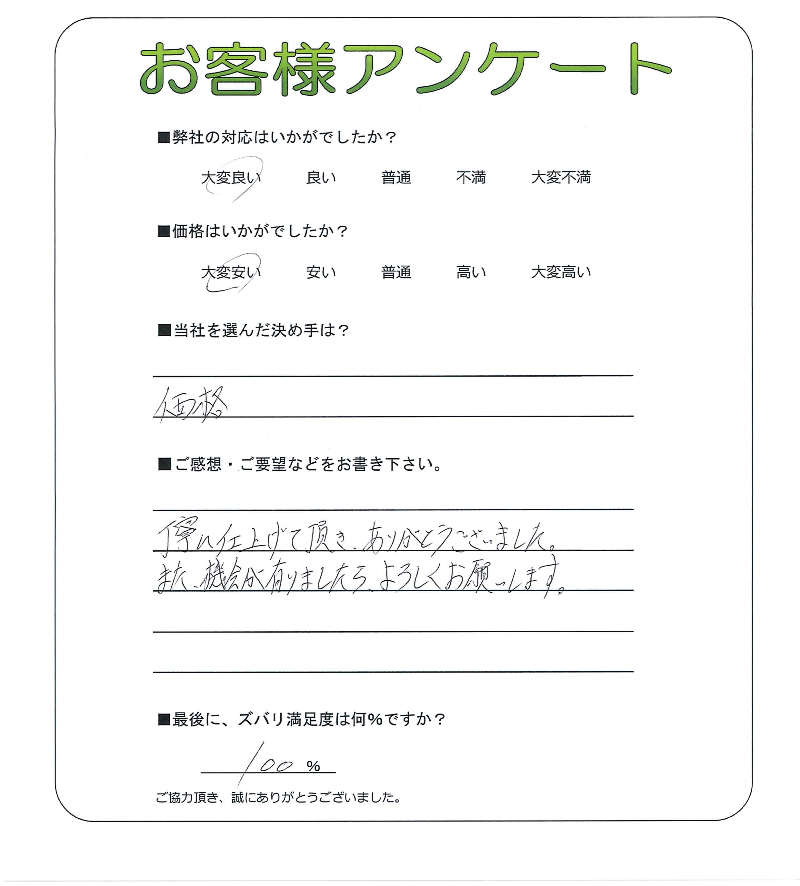 お客様アンケート
■弊社の対応はいかがでしたか？
大変良い 良い 普通 不満 大変不満
■価格はいかがでしたか？
大変安い 安い 普通 高い 大変高い
■当社を選んだ決め手は？
価格
■ご感想・ご要望などをお書き下さい。
丁寧に仕上げて頂き、ありがとうございました。
また、機会が有りましたら、よろしくお願いします。
■最後に、ズバリ満足度は何%ですか？
100 %
ご協力頂き、誠にありがとうございました。